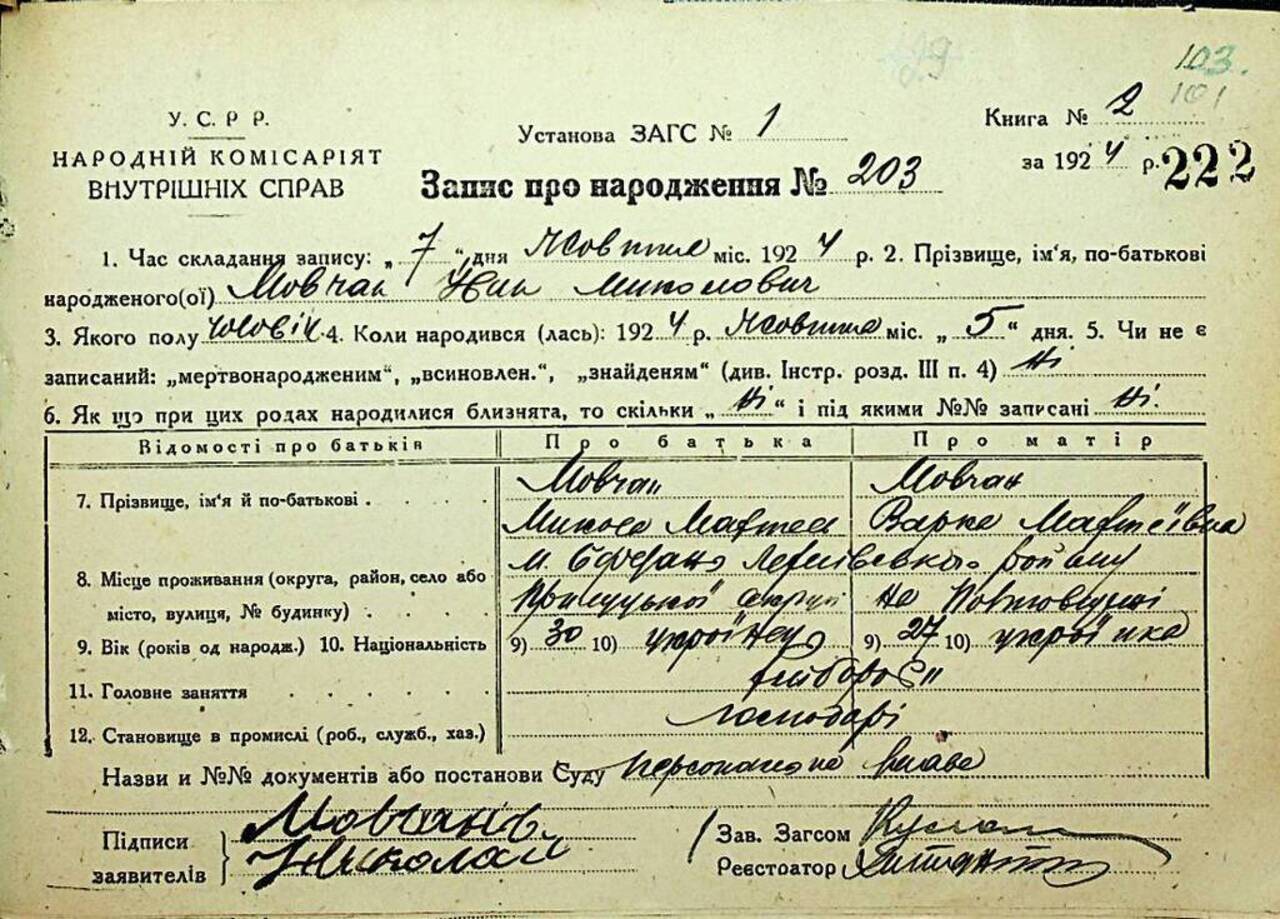 103.
101
У. С. Р Р.
НАРОДНІЙ КОМІСАРІЯТ
ВНУТРІШНІХ СПРАВ
Установа ЗАГС № 1
Книга № 2
за 1924 р. 222
Запис про народження № 203
1. Час складання запису: „ 7 “ дня Жовтня міс. 1924 р. 2. Прізвище, ім‘я, по-батькові
народженого(ої) Мовчан Іван Миколович
3. Якого полу чоловіч. 4. Коли народився (лась): 1924 р. Жовтня міс. „ 5 “ дня. 5. Чи не є
записаний: „мертвонародженим“, „всиновлен.“, „знайденям“ (див. Інстр. розд. III п. 4) Ні
6. Як що при цих родах народилися близнята, то скільки „ Ні “ і під якими №№ записані Ні.
Відомості про батьків Про батька Про матір
7. Прізвище, ім‘я й по-батькові . . . . Мовчан Мовчан
Микола Варка Матвіївна
8. Місце проживання (округа, район, село або
місто, вулиця, № будинку) . . Прилуцької округи на Полтавщині
9. Вік (років од народж.) 10. Національність 9) 30 10) українець 9) 27 10) українка
11. Головне заняття . . . . . . хлібороб
12. Становище в промислі (роб., служб., хаз.) господарі
Назви и №№ документів або постанови Суду персонально
Підписи
заявителів
Мовчанів
Николай
Зав. Загсом
Реєстратор